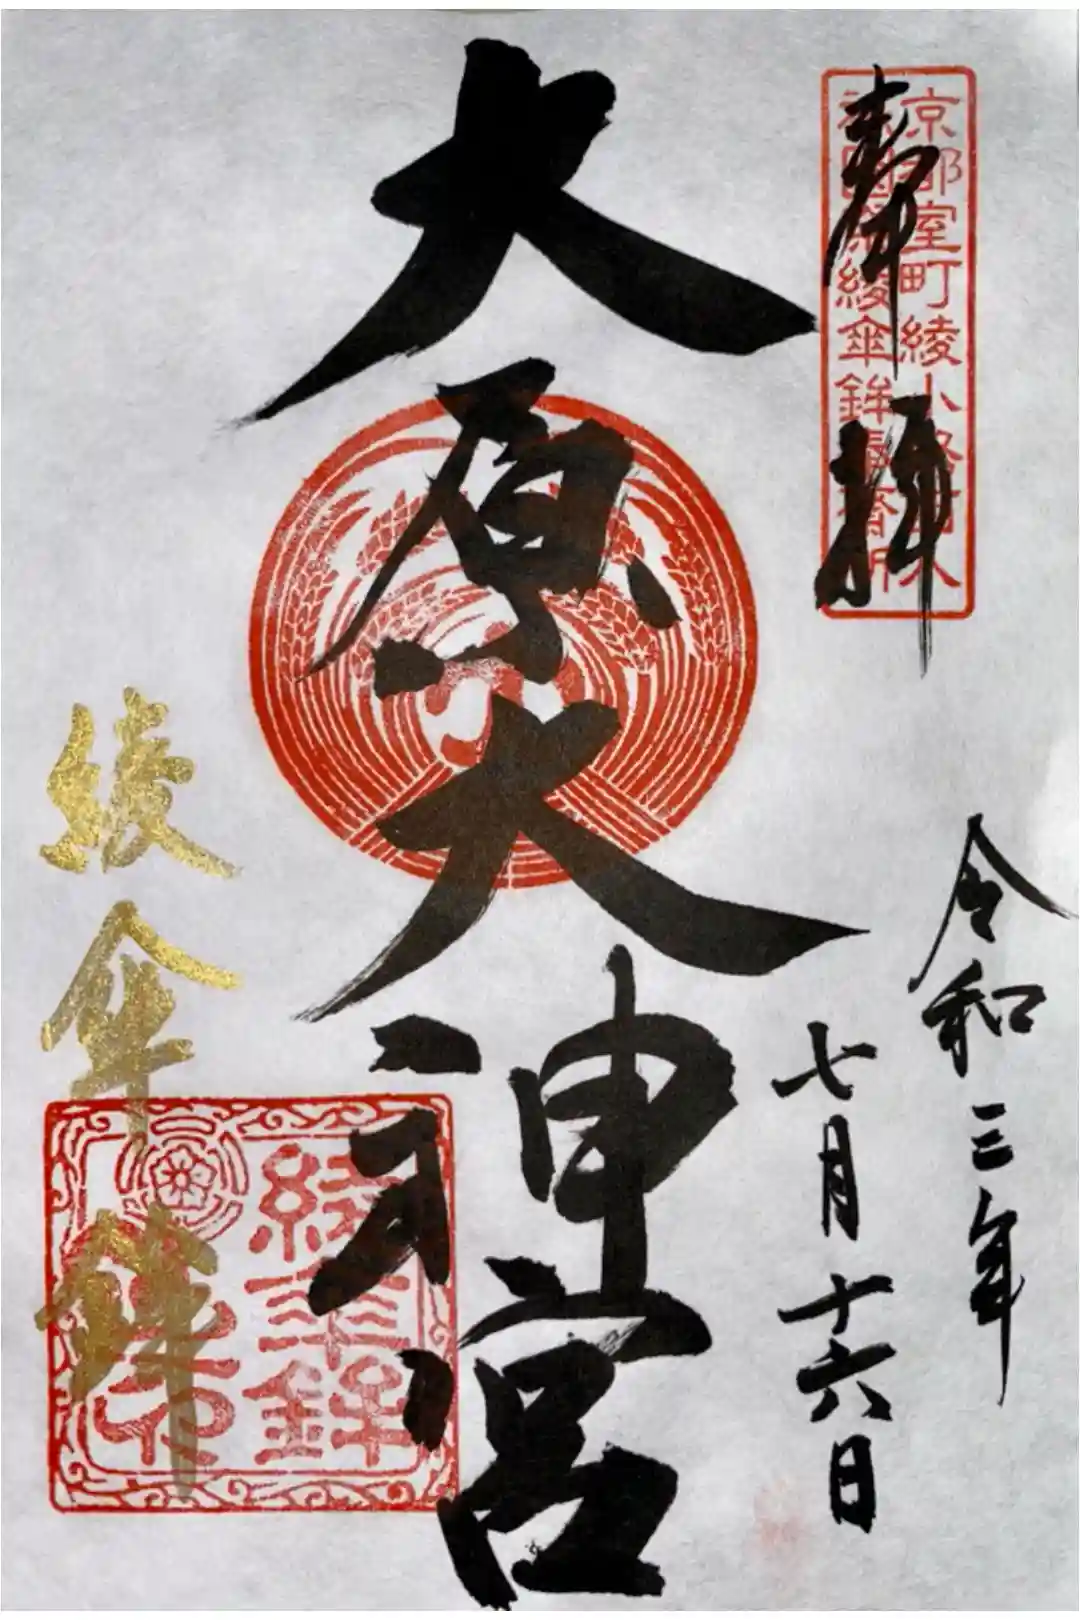 奉拝
京都室町綾小路
祇園祭綾傘鉾
大原大神宮
令和三年
七月十六日
綾傘鉾
綾傘鉾